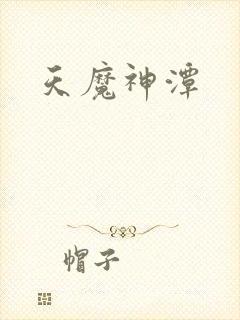 天魔神潭
帽子